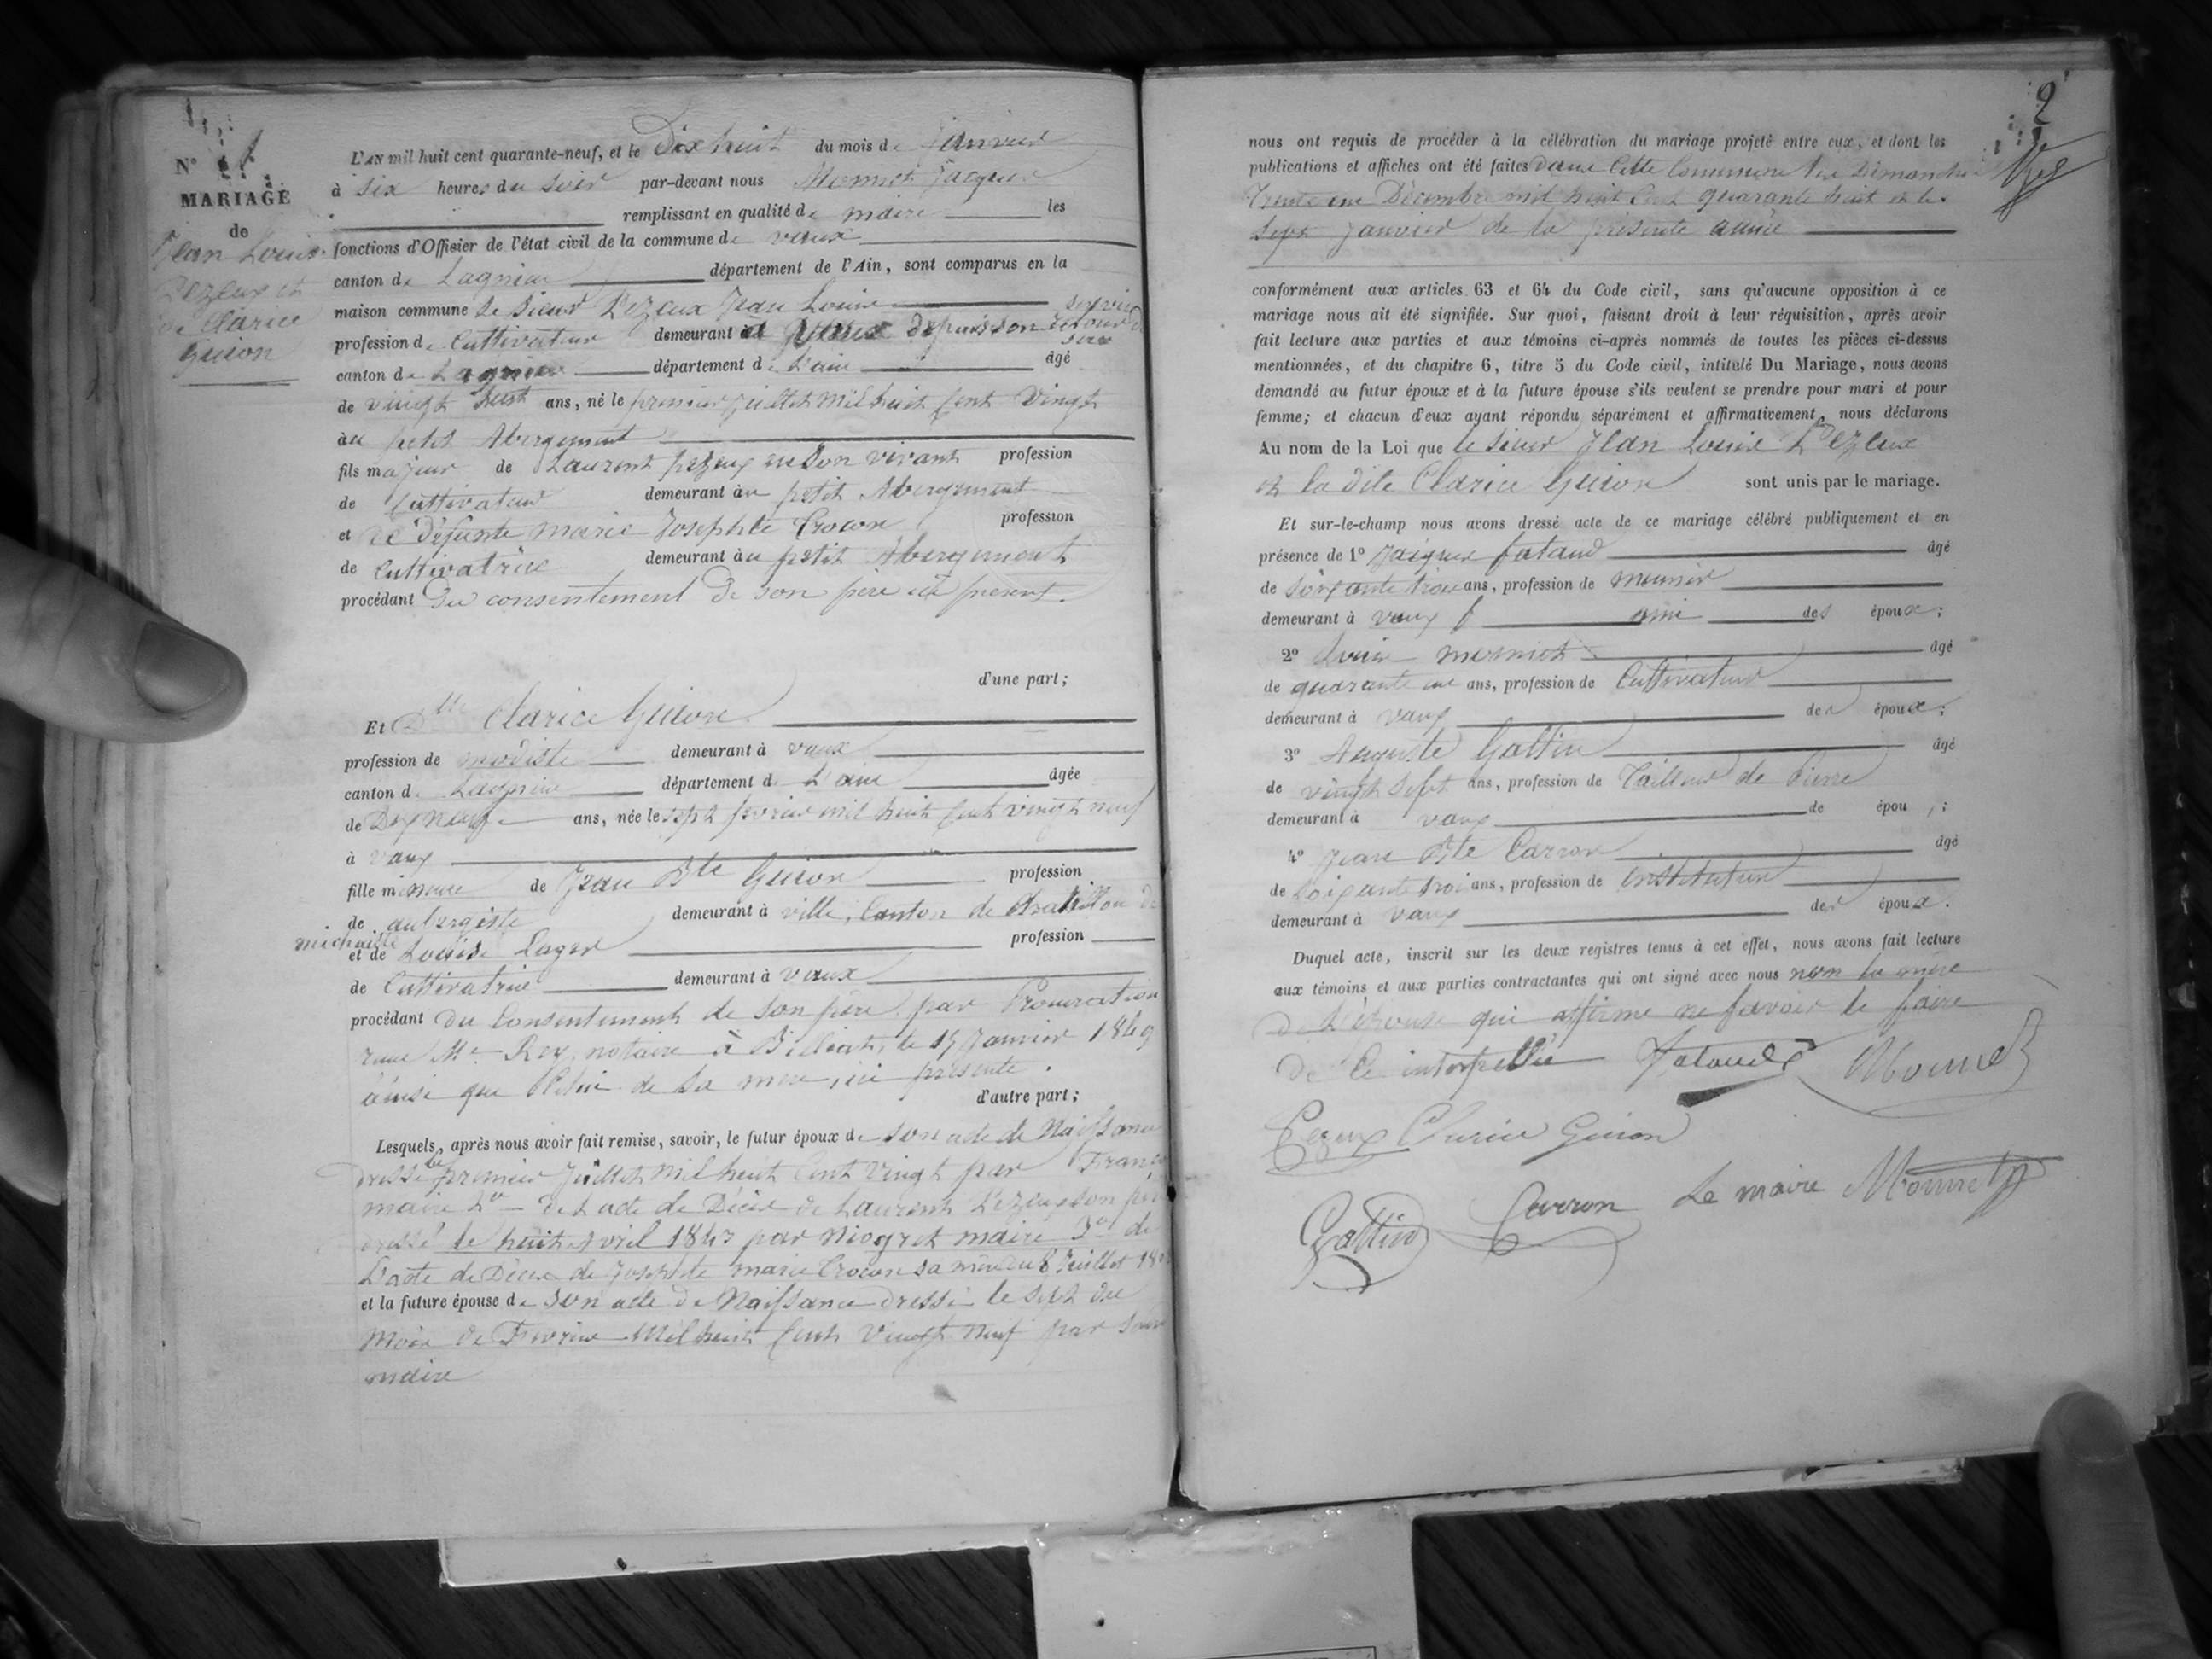 N° 1
MARIAGE
de
Jean Louis
Pezeux et
de Clarice
Guion
L'AN mil huit cent quarante-neuf, et le Dix huit du mois de Janvier
à six heures du soir par-devant nous Mornet Jacques
remplissant en qualité de maire les
fonctions d'Officier de l'état civil de la commune de vaux
canton de Lagnieu département de l'Ain, sont comparus en la
maison commune le sieur Pezeux Jean Louis
profession de Cultivateur demeurant à Vaux depuis son retour du service
canton de Lagnieu département de L'ain âgé
de vingt huit ans, né le premier juillet mil huit Cent Vingt
au petit Abergement
fils majeur de Laurent pezeux en son vivant profession
de Cultivateur demeurant au petit Abergement
et de Défunte marie Josephte Crocon profession
de Cultivatrice demeurant au petit Abergement
procédant Du consentement de son père ici présent.
d'une part;
Et Dlle Clarice Guion
profession de modiste demeurant à vaux
canton de Lagnieu département de L'ain âgée
de Dix neuf ans, née le sept fevrier mil huit Cent vingt neuf
à vaux
fille mineure de Jean Bte Guion profession
de aubergiste demeurant à ville, Canton de Chatillon de
michaille
et de Louise Lager profession
de Cultivatrice demeurant à vaux
procédant du Consentement de son père par Procuration
Me Rey, notaire à Billiat, le 15 Janvier 1849
ainsi que Celui de sa mère, ici présente.
d'autre part;
Lesquels, après nous avoir fait remise, savoir, le futur époux de son acte de Naissance
dressé le premier Juillet mil huit Cent Vingt par
maire 2° de L'acte de Décès de Laurent Pezeux son père
dressé le huit avril 1843 par Niogret maire 3° de
L'acte de Décès de Josephte marie Crocon sa mère du 8 Juillet
et la future épouse de son acte de Naissance dressé le sept du
Mois de Fevrier Mil huit Cent Vingt Neuf par
maire
2
nous ont requis de procéder à la célébration du mariage projeté entre eux, et dont les
publications et affiches ont été faites dans Cette Commune les Dimanches
Trente un Décembre mil huit Cent quarante huit et le
sept Janvier de la présente année
conformément aux articles 63 et 64 du Code civil, sans qu'aucune opposition à ce
mariage nous ait été signifiée. Sur quoi, faisant droit à leur réquisition, après avoir
fait lecture aux parties et aux témoins ci-après nommés de toutes les pièces ci-dessus
mentionnées, et du chapitre 6, titre 5 du Code civil, intitulé Du Mariage, nous avons
demandé au futur époux et à la future épouse s'ils veulent se prendre pour mari et pour
femme; et chacun d'eux ayant répondu séparément et affirmativement, nous déclarons
Au nom de la Loi que le sieur Jean Louis Pezeux
et la dite Clarice Guion sont unis par le mariage.
Et sur-le-champ nous avons dressé acte de ce mariage célébré publiquement et en
présence de 1° Jacques fataud âgé
de soixante trois ans, profession de meunier
demeurant à vaux ami des époux;
2° Louis mornet âgé
de quarante un ans, profession de Cultivateur
demeurant à vaux des époux;
3° Auguste Gattin âgé
de vingt sept ans, profession de Tailleur de Pierre
demeurant à vaux de épou ;
4° Jean Bte Carron âgé
de Soixante trois ans, profession de instituteur
demeurant à vaux des époux.
Duquel acte, inscrit sur les deux registres tenus à cet effet, nous avons fait lecture
aux témoins et aux parties contractantes qui ont signé avec nous non la mère
De L'épouse qui affirme ne savoir le faire
De Ce interpellée Fataud Mornet
Pezeux Clarice Guion
Gattin Carron Le maire Mornet